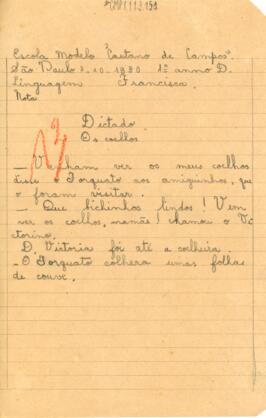 Escola Modelo "Caetano de Campos".
São Paulo 3-10-1930 1º anno D.
Linguagem Francisca.
Nota
Dictado
Os coelhos
— Venham ver os meus coelhos
disse o Torquato aos amiguinhos, que
o foram visitar.
— Que bichinhos lindos! Vem
ver os coelhos, mamãe! chamou o Vi
ctorino.
D. Vitoria foi até a coelheira.
— O Torquato colhera umas folhas
de couve.